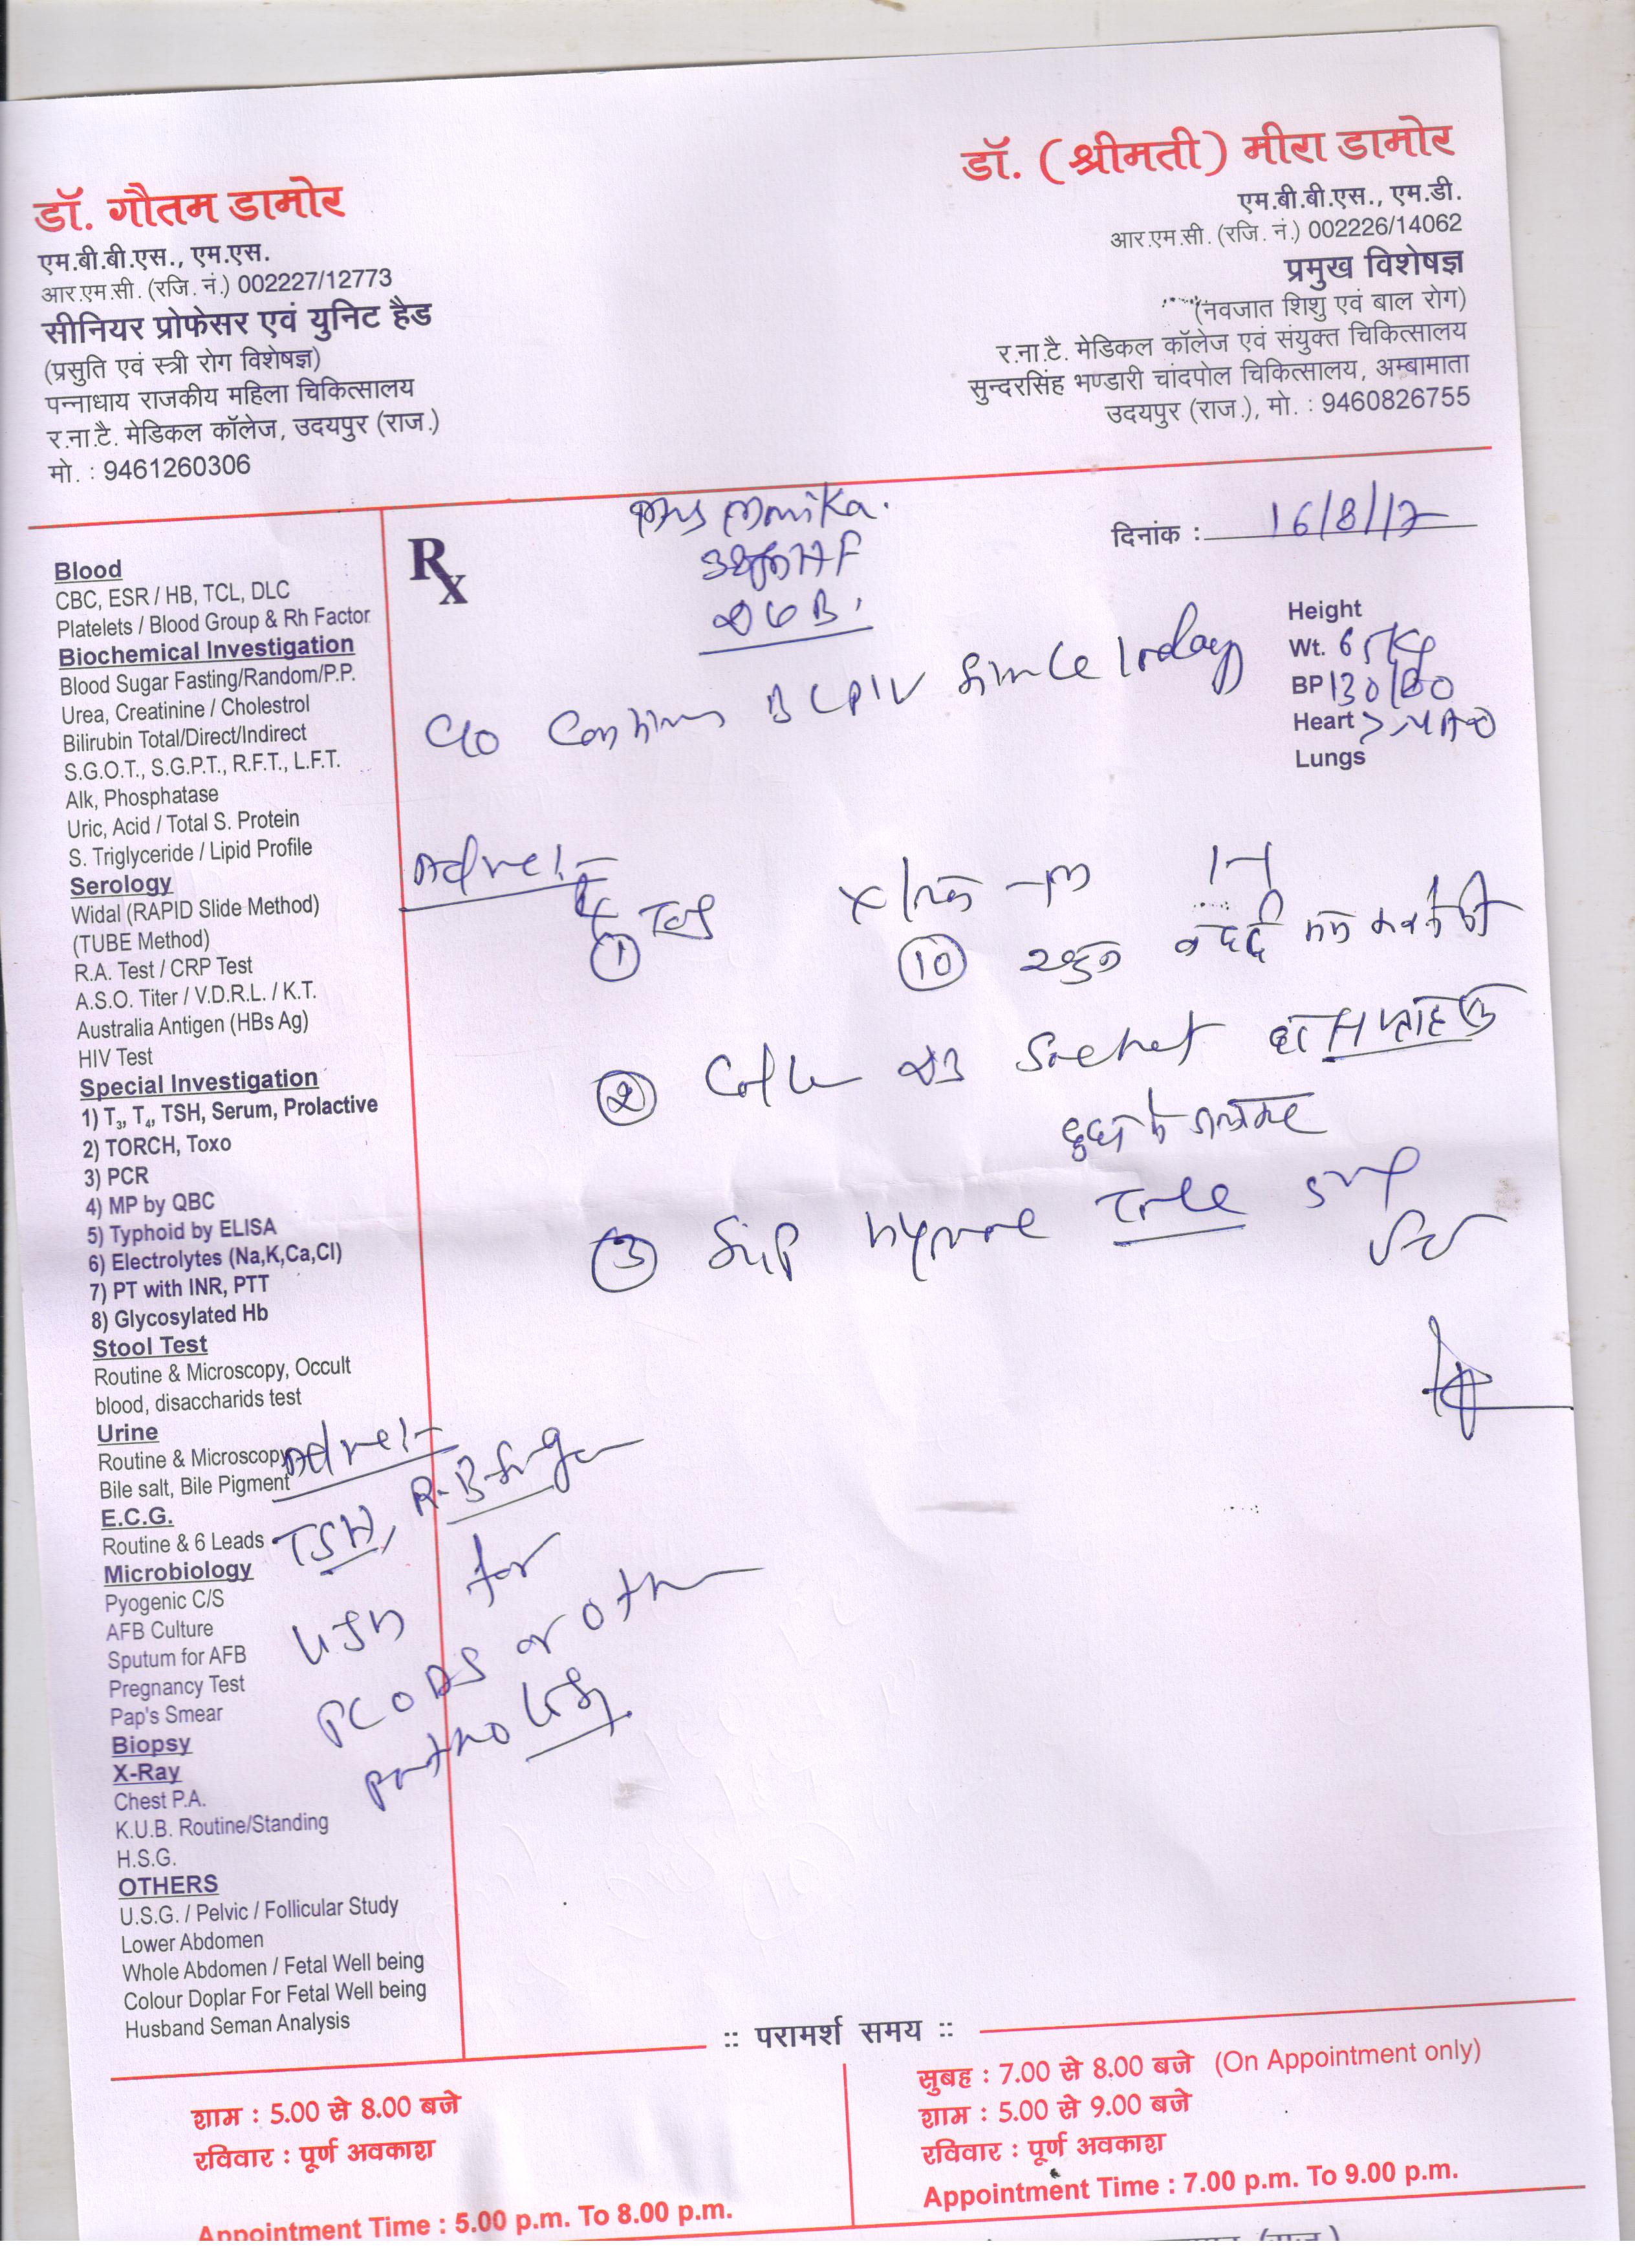 डॉ. गौतम डामोर
एम.बी.बी.एस., एम.एस.
आर.एम.सी. (रजि. नं.) 002227/12773
सीनियर प्रोफेसर एवं युनिट हैड
(प्रसुति एवं स्त्री रोग विशेषज्ञ)
पन्नाधाय राजकीय महिला चिकित्सालय
र.ना.टै. मेडिकल कॉलेज, उदयपुर (राज.)
मो. : 9461260306
डॉ. (श्रीमती) मीरा डामोर
एम.बी.बी.एस., एम.डी.
आर.एम.सी. (रजि. नं.) 002226/14062
प्रमुख विशेषज्ञ
(नवजात शिशु एवं बाल रोग)
र.ना.टै. मेडिकल कॉलेज एवं संयुक्त चिकित्सालय
सुन्दरसिंह भण्डारी चांदपोल चिकित्सालय, अम्बामाता
उदयपुर (राज.), मो. : 9460826755
Blood
CBC, ESR / HB, TCL, DLC
Platelets / Blood Group & Rh Factor
Biochemical Investigation
Blood Sugar Fasting/Random/P.P.
Urea, Creatinine / Cholestrol
Bilirubin Total/Direct/Indirect
S.G.O.T., S.G.P.T., R.F.T., L.F.T.
Alk, Phosphatase
Uric, Acid / Total S. Protein
S. Triglyceride / Lipid Profile
Serology
Widal (RAPID Slide Method)
(TUBE Method)
R.A. Test / CRP Test
A.S.O. Titer / V.D.R.L. / K.T.
Australia Antigen (HBs Ag)
HIV Test
Special Investigation
1) T3, T4, TSH, Serum, Prolactive
2) TORCH, Toxo
3) PCR
4) MP by QBC
5) Typhoid by ELISA
6) Electrolytes (Na,K,Ca,Cl)
7) PT with INR, PTT
8) Glycosylated Hb
Stool Test
Routine & Microscopy, Occult
blood, disaccharids test
Urine
Routine & Microscopy
Bile salt, Bile Pigment
E.C.G.
Routine & 6 Leads
Microbiology
Pyogenic C/S
AFB Culture
Sputum for AFB
Pregnancy Test
Pap's Smear
Biopsy
X-Ray
Chest P.A.
K.U.B. Routine/Standing
H.S.G.
OTHERS
U.S.G. / Pelvic / Follicular Study
Lower Abdomen
Whole Abdomen / Fetal Well being
Colour Doplar For Fetal Well being
Husband Seman Analysis
Rx
Mrs Monika.
दिनांक : 16/8/17
Height
Wt. 65 Kg
BP 130/80
Heart
Lungs
c/o since
Advice:-
①
⑩
② sachet
दुध के साथ
③
Advice:-
TSH, R-B-Sugar
USG for
PCODS or other
pathology
:: परामर्श समय ::
शाम : 5.00 से 8.00 बजे
रविवार : पूर्ण अवकाश
Appointment Time : 5.00 p.m. To 8.00 p.m.
सुबह : 7.00 से 8.00 बजे (On Appointment only)
शाम : 5.00 से 9.00 बजे
रविवार : पूर्ण अवकाश
Appointment Time : 7.00 p.m. To 9.00 p.m.